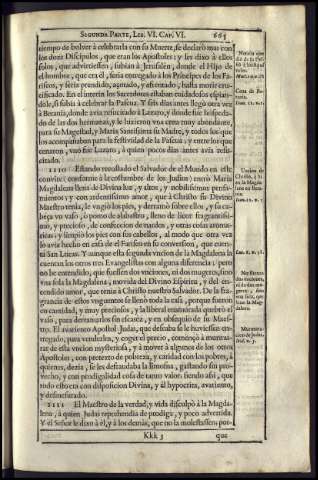 SEGUNDA PARTE, LIB. VI. CAP. VI.
665
tiempo de bolver à celebrarla con su Muerte, se declarò mas con
los doze Discipulos, que eran los Apostoles: y les dixo à ellos
solos, que advirtiessen, subian à Jerusalèn, donde el Hijo de
el hombre, que era èl, seria entregado à los Principes de los Fa-
riseos, y seria prendido, açotado, y afrentado, hasta morir cru-
cificado. En el interin los Sacerdotes estaban cuidadosos espian-
dole, si subia à celebrar la Pascua. Y seis dias antes llegò otra vez à
Betania, donde avia resucitado à Lazaro, y donde fue hospeda-
do de las dos hermanas, y le hizieron una cena muy abundante,
para su Magestad, y Maria Santissima su Madre, y todos los que
los acompañaban para la festividad de la Pascua: y entre los que
cenaron, vno fue Lazaro, à quien pocos dias antes avia resu-
citado.
1110 Estando recostado el Salvador de el Mundo en este
convite (conforme à la costumbre de los Judios) entrò Maria
Magdalena llena de Divina luz, y altos, y nobilissimos pensa-
mientos: y con ardentissimo amor, que à Christo su Divino
Maestro tenia, le vngiò los pies, y derramò sobre ellos, y su ca-
beça vn vaso, ò pomo de alabastro, lleno de licor fragrantissi-
mo, y precioso, de confeccion de nardos, y otras cosas aroma-
ticas: y limpiò los pies con sus cabellos, al modo que otra vez
lo avia hecho en casa de el Fariseo en su conversion, que cuen-
ta San Lucas. Y aunque esta segunda vncion de la Magdalena la
cuentan los otros tres Evangelistas con alguna diferencia; pero
no he entendido, que fuessen dos vnciones, ni dos mugeres, sino
vna sola la Magdalena, movida del Divino Espiritu, y del en-
cendido amor, que tenia à Christo nuestro Salvador. De la fra-
grancia de estos vnguentos se llenò toda la casa, porque fueron
en cantidad, y muy preciosos, y la liberal enamorada quebrò el
vaso, para derramarlos sin escasez, y en obsequio de su Maes-
tro. El avariento Apostol Judas, que deseaba se le huviessen en-
tregado, para venderlos, y coger el precio, començò à murmu-
rar de esta vncion mysteriosa, y à mover à algunos de los otros
Apostoles, con pretexto de pobreza, y caridad con los pobres, à
quienes, dezia, se les defraudaba la limosna, gastando sin pro-
vecho, y con prodigalidad cosa de tanto valor. siendo assi, que
todo esto era con disposicion Divina, y èl hypocrita, avariento,
y desmesurado.
1111 El Maestro de la verdad, y vida disculpò à la Magda-
lena, à quien Judas reprehendia de prodiga, y poco advertida.
Y el Señor le dixo à èl, y à los demàs, que no la molestassen; por-
Kkk 3
que